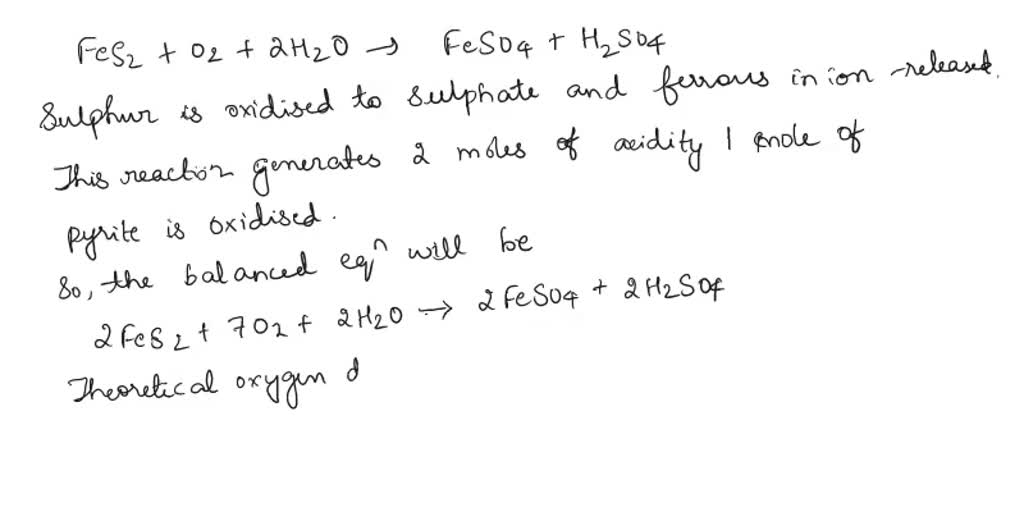 FeS2 + O2 + 2H2O → FeSO4 + H2SO4
Sulphur is oxidised to sulphate and ferrous in ion released.
This reaction generates 2 moles of acidity 1 mole of
pyrite is oxidised.
So, the balanced eqn will be
2FeS2 + 7O2 + 2H2O → 2FeSO4 + 2H2SO4
Theoretical oxygen d